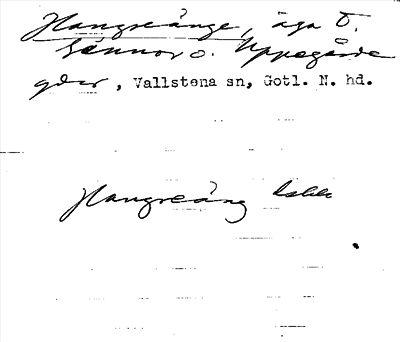 Hangreänge, äga t.
Lännor o. Uppegårde
gdar, Vallstena sn, Gotl. N. hd.
Hangreäng